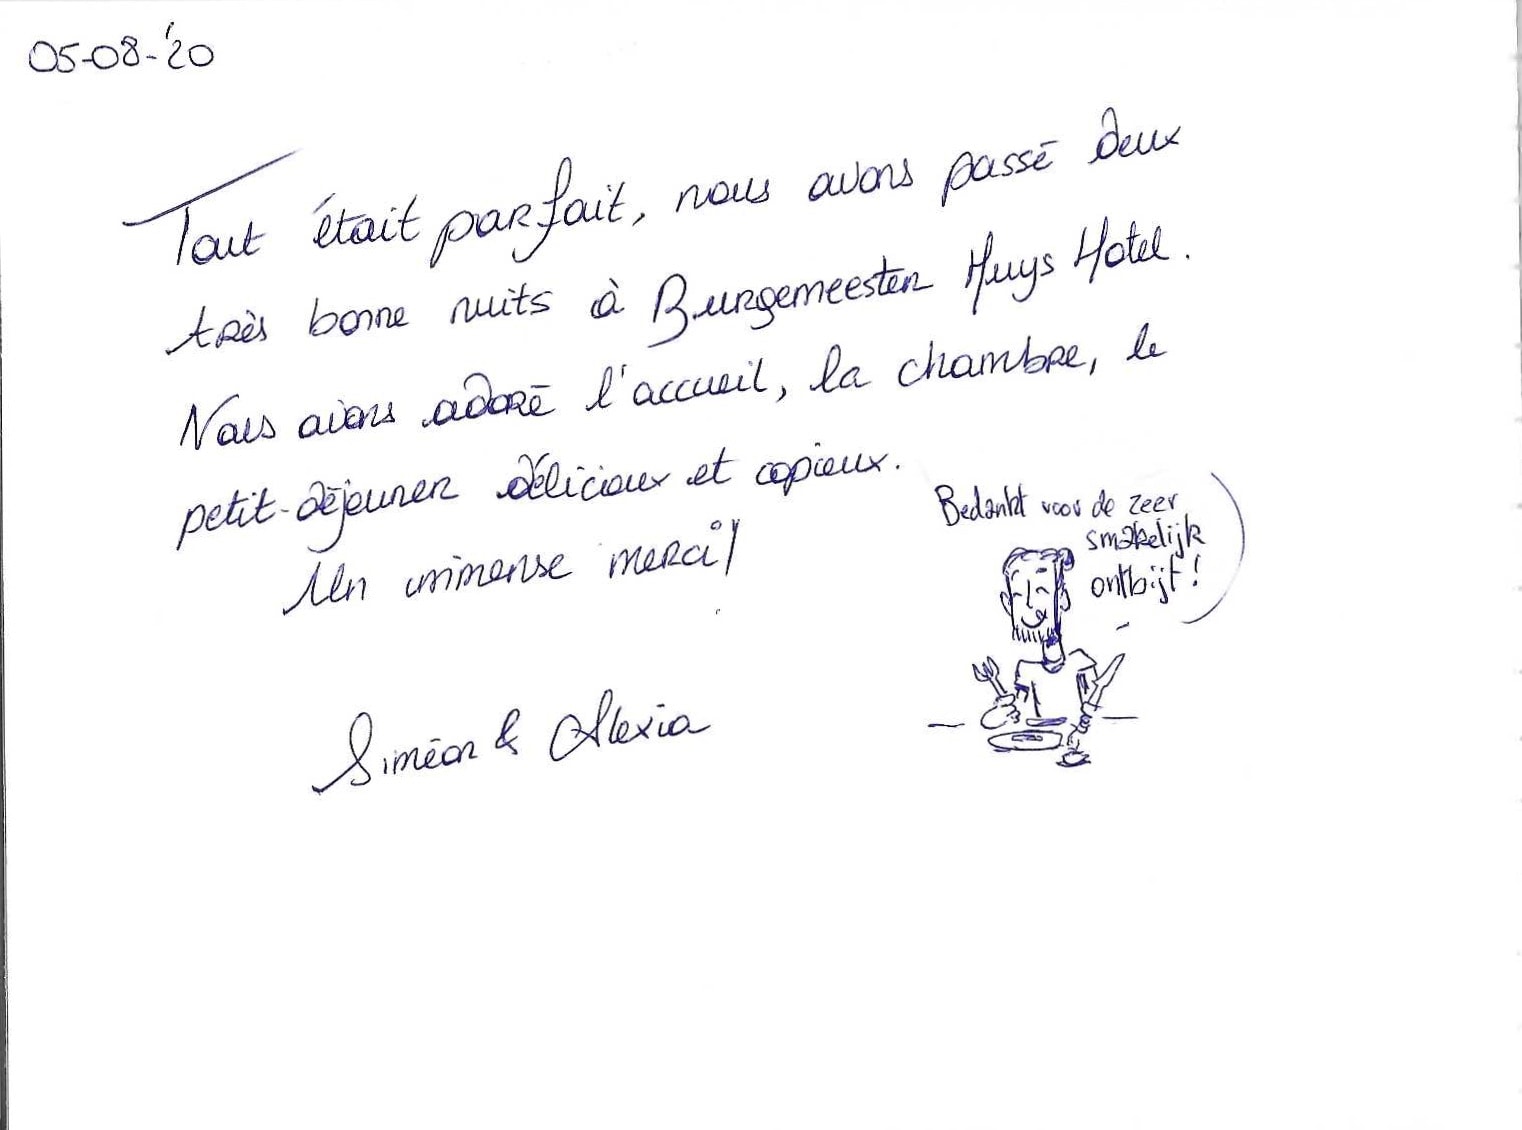 05-08-'20
Tout était parfait, nous avons passé deux
très bonne nuits à Burgemeester Huys Hotel.
Nous avons adoré l'accueil, la chambre, le
petit-déjeuner délicieux et copieux.
Un immense merci!
Bedankt voor de zeer
smakelijk
ontbijt!
Siméon & Alexia